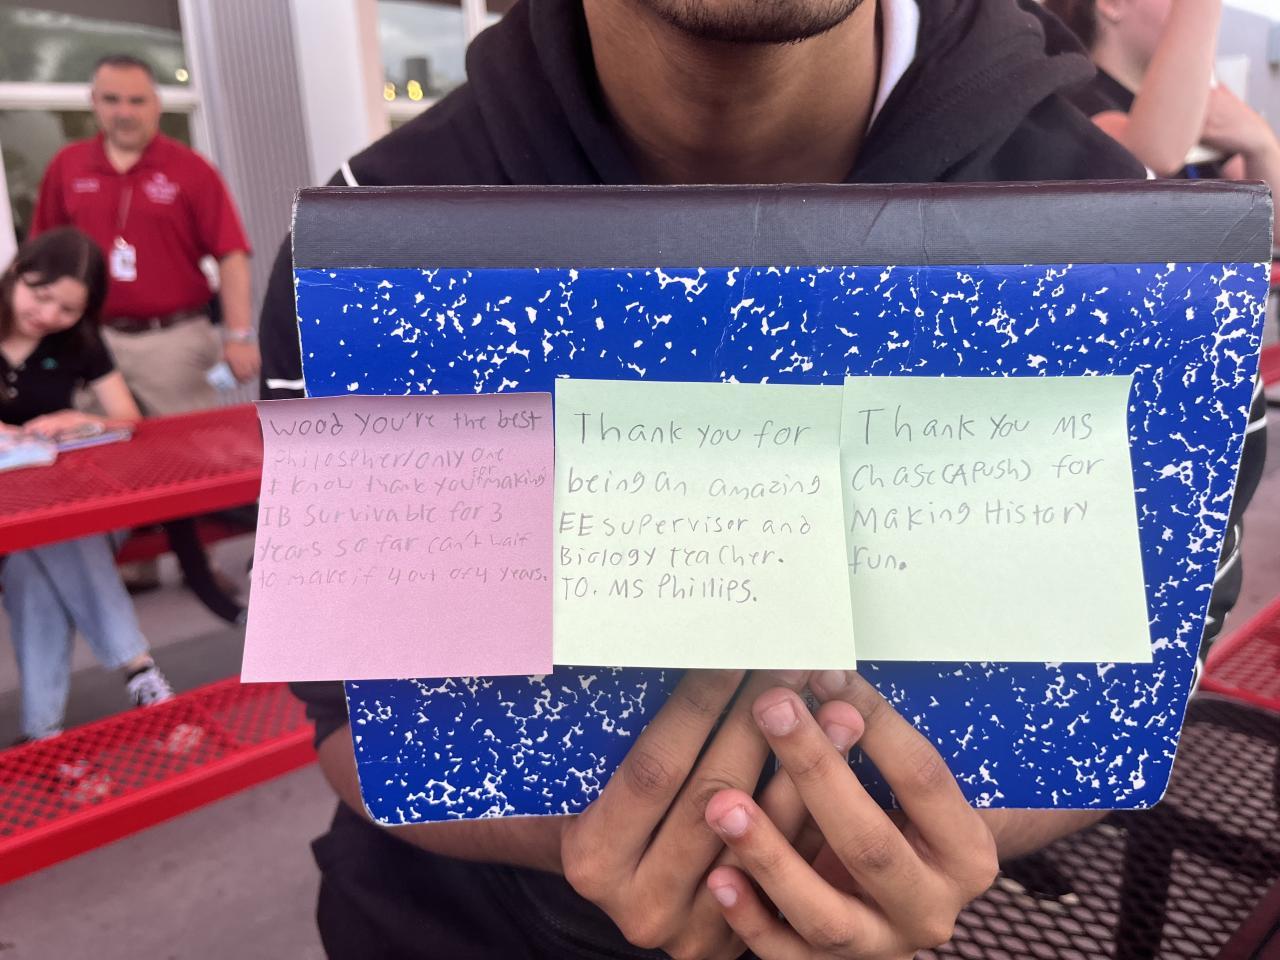 Wood you're the best
Philospher/only one
I know thank you for making
IB survivable for 3
years so far can't wait
to make it 4 out of 4 years.
Thank you for
being an amazing
EE supervisor and
Biology teacher.
TO. MS Phillips.
Thank you MS
Chase(APUSH) for
Making History
fun.